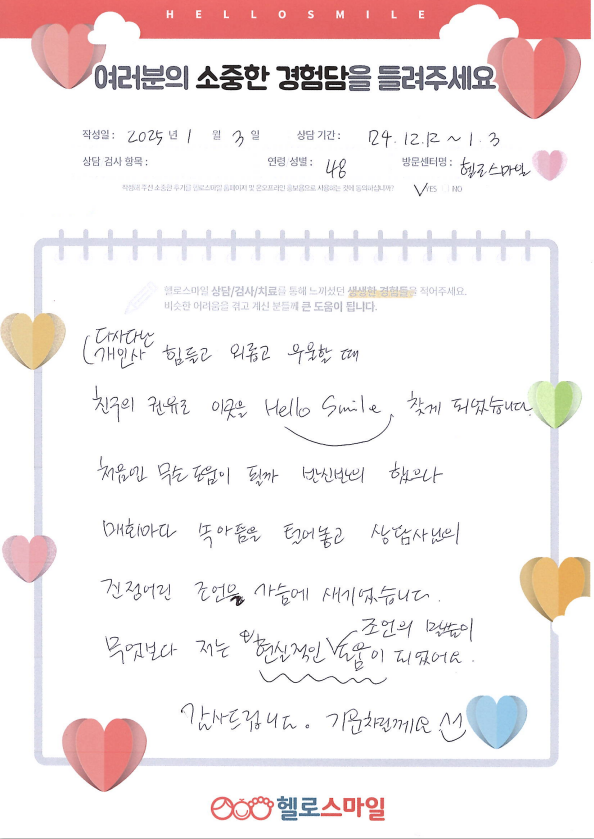 HELLOSMILE
여러분의 소중한 경험담을 들려주세요
작성일 : 2025 년 1 월 3 일 상담 기간 : 24. 12. 12 ~ 1. 3
상담 검사 항목 : 연령 성별 : 48 방문센터명 : 헬로스마일
작성해 주신 소중한 후기를 헬로스마일 홈페이지 및 온오프라인 홍보용으로 사용하는 것에 동의하십니까? YES NO
헬로스마일 상담/검사/치료를 통해 느끼셨던 생생한 경험들을 적어주세요.
비슷한 어려움을 겪고 계신 분들께 큰 도움이 됩니다.
(다사다난
개인사 힘들고 외롭고 우울할 때
친구의 권유로 이곳을 Hello Smile, 찾게 되었습니다
처음엔 무슨 도움이 될까 반신반의 했으나
매회마다 속아픔을 털어놓고 상담사님의
진정어린 조언을 가슴에 새기었습니다.
조언의 말씀이
무엇보다 저는 현실적인 도움이 되었어요.
감사드립니다. 기운차릴께요
헬로스마일